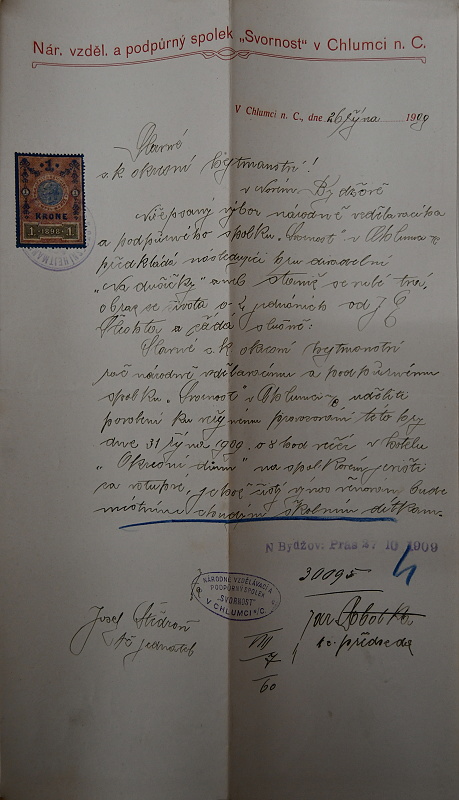 Nár. vzděl. a podpůrný spolek „Svornost" v Chlumci n. C.
V Chlumci n. C., dne 26 října 1909
Slavné
c.k. okresní hejtmanství!
v Novém Bydžově
1
KRONE
1 1898 1
výbor národně vzdělavacího
a podpůrného spolku „Svornost" v Chlumci n/C
předkládá následující hru divadelní
„Na dušičky" aneb
obraz ze života o 2 jednáních od J. E.
Šlechta a žádá slušně:
Slavné c.k. okresní hejtmanství
račž národně vzdělavacímu a podpůrnému
spolku „Svornost" v Chlumci n/C uděliti
povolení ku veřejnému provozování této hry
dne 31 října 1909 o 8 hod večer v hotelu
„Okresní dům" na spolkovém jevišti
za vstupné, jehož čistý výnos věnován bude
místním chudým školním dítkám.
N Bydžov: Präs 27 10 1909
30095
NÁRODNĚ VZDĚLAVACÍ A
PODPŮRNÝ SPOLEK
„SVORNOST"
V CHLUMCI N/C.
Josef
t.č. jednatel
Jar. Sobotka
t.č. předseda
VIII
7
60